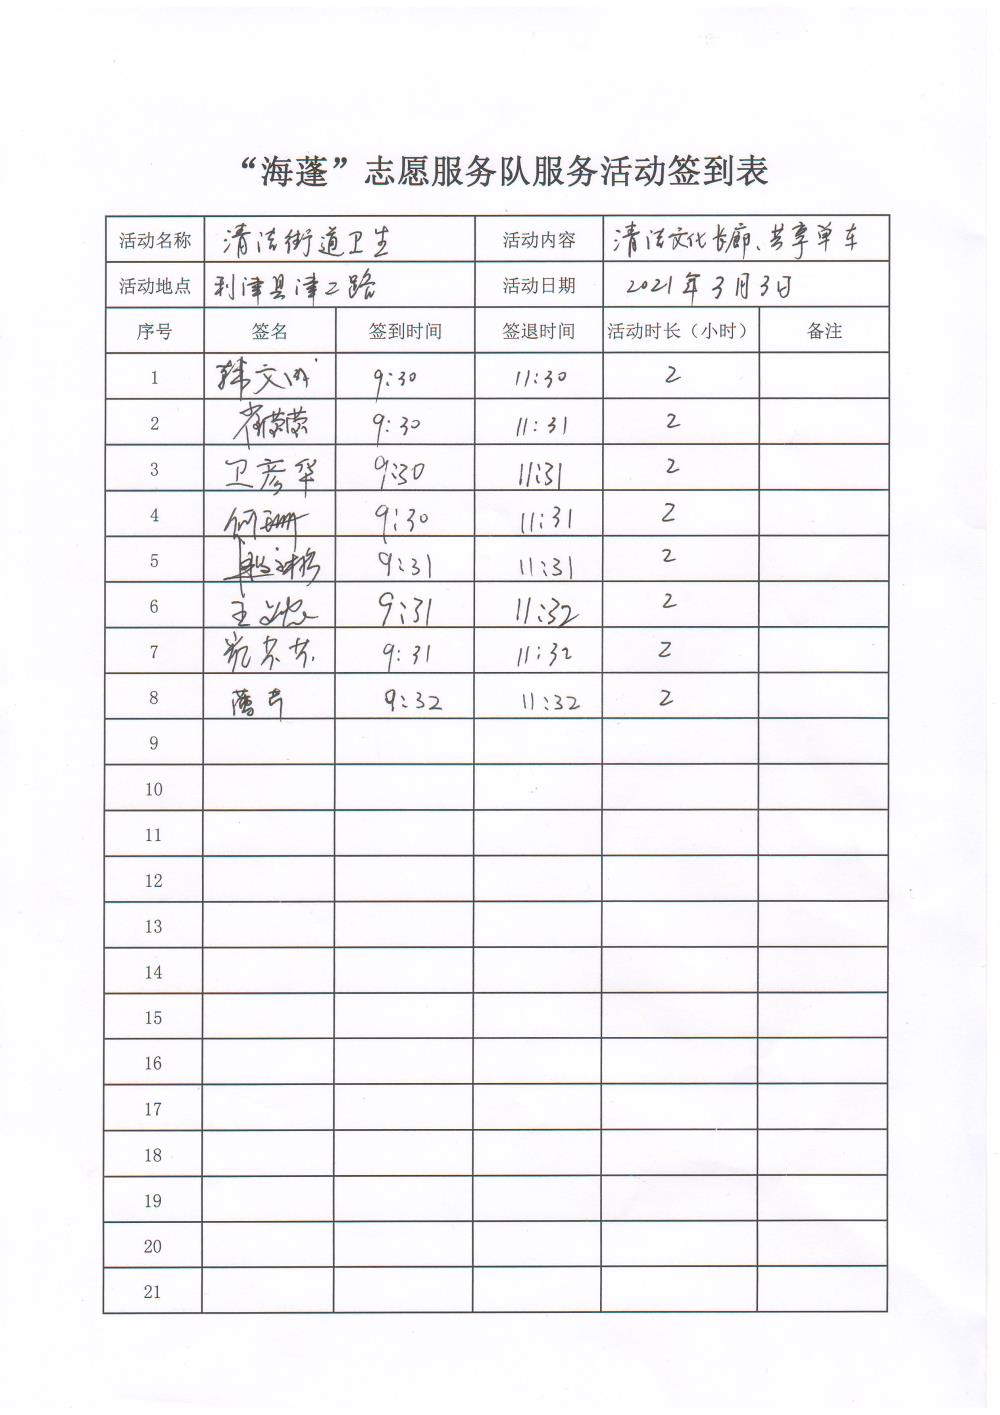 “海蓬”志愿服务队服务活动签到表
活动名称 清洁街道卫生 活动内容 清洁文化长廊、共享单车
活动地点 利津县津二路 活动日期 2021年3月3日
序号 签名 签到时间 签退时间 活动时长（小时） 备注
1 韩文成 9:30 11:30 2
2 崔蒙蒙 9:30 11:31 2
3 卫彦华 9:30 11:31 2
4 何珊 9:30 11:31 2
5 9:31 11:31 2
6 王 9:31 11:32 2
7 9:31 11:32 2
8 9:32 11:32 2
9
10
11
12
13
14
15
16
17
18
19
20
21